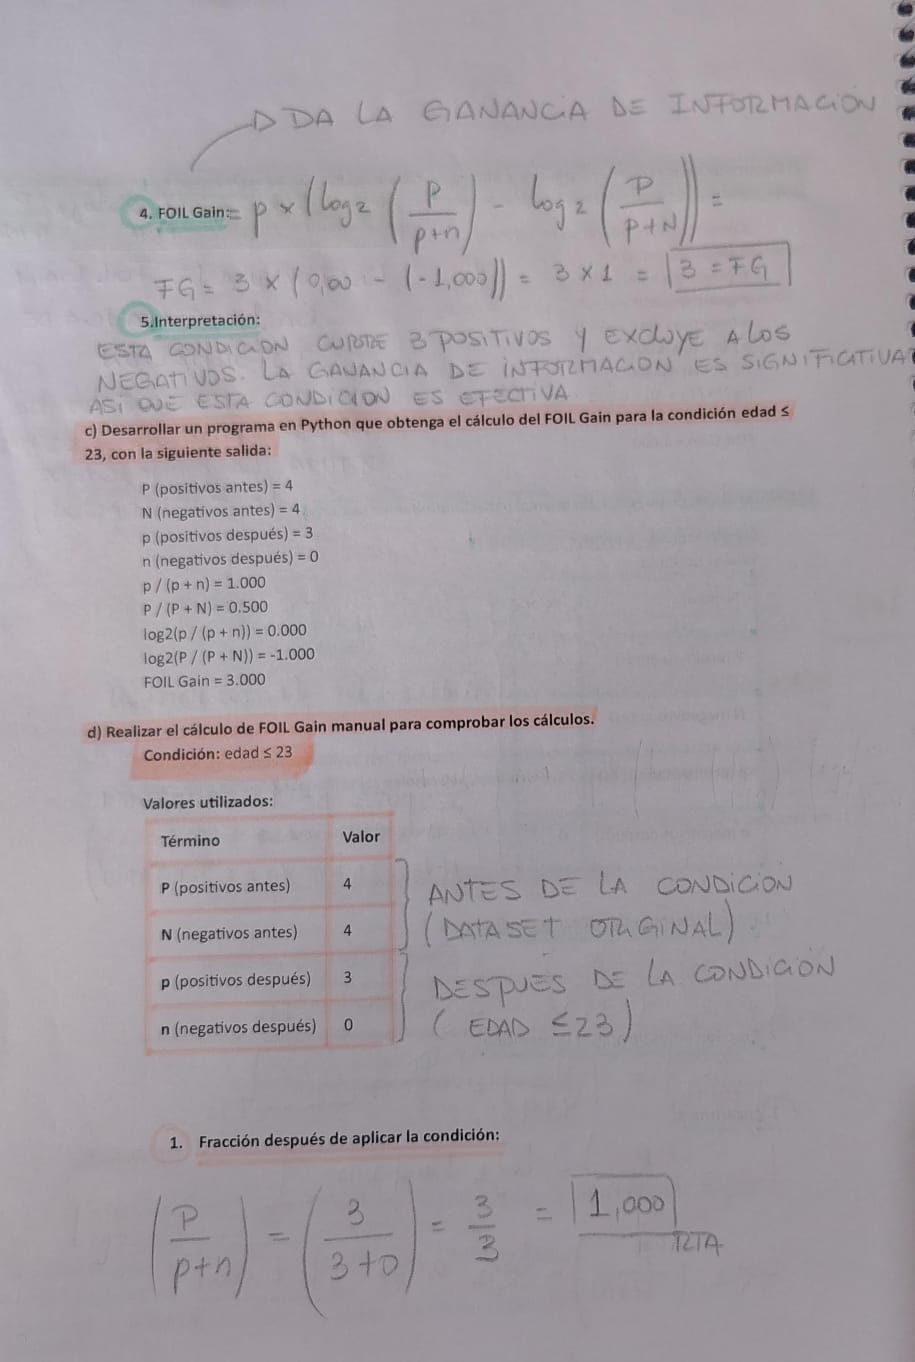 DA LA GANANCIA DE INFORMACIÓN
4. FOIL Gain:= p × (log2 (p/(p+n)) - log2 (P/(P+N))) =
FG = 3 × (0,00 - (-1,000)) = 3 × 1 = 3 = FG
5.Interpretación:
ESTA CONDICION CUBRE 3 POSITIVOS Y EXCLUYE A LOS
NEGATIVOS. LA GANANCIA DE INFORMACION ES SIGNIFICATIVA
ASI QUE ESTA CONDICION ES EFECTIVA
c) Desarrollar un programa en Python que obtenga el cálculo del FOIL Gain para la condición edad ≤
23, con la siguiente salida:
P (positivos antes) = 4
N (negativos antes) = 4
p (positivos después) = 3
n (negativos después) = 0
p / (p + n) = 1.000
P / (P + N) = 0.500
log2(p / (p + n)) = 0.000
log2(P / (P + N)) = -1.000
FOIL Gain = 3.000
d) Realizar el cálculo de FOIL Gain manual para comprobar los cálculos.
Condición: edad ≤ 23
Valores utilizados:
Término Valor
P (positivos antes) 4
N (negativos antes) 4
ANTES DE LA CONDICIÓN
(DATASET ORIGINAL)
p (positivos después) 3
n (negativos después) 0
DESPUÉS DE LA CONDICIÓN
(EDAD ≤23)
1. Fracción después de aplicar la condición:
(p/(p+n)) = (3/(3+0)) = 3/3 = 1,000
RTA